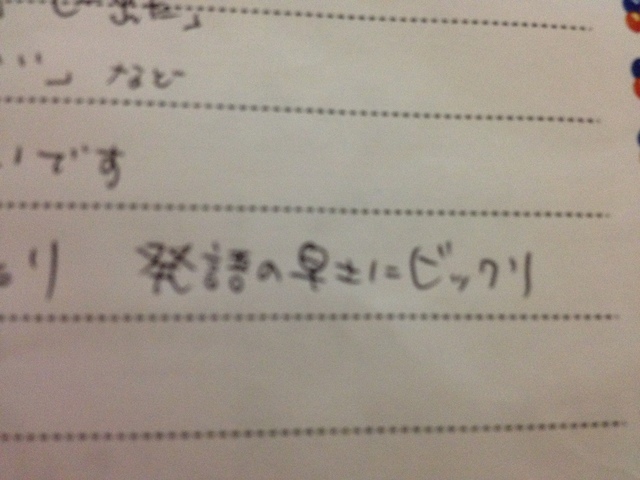 」など
いです
り 発語の早さにビックリ